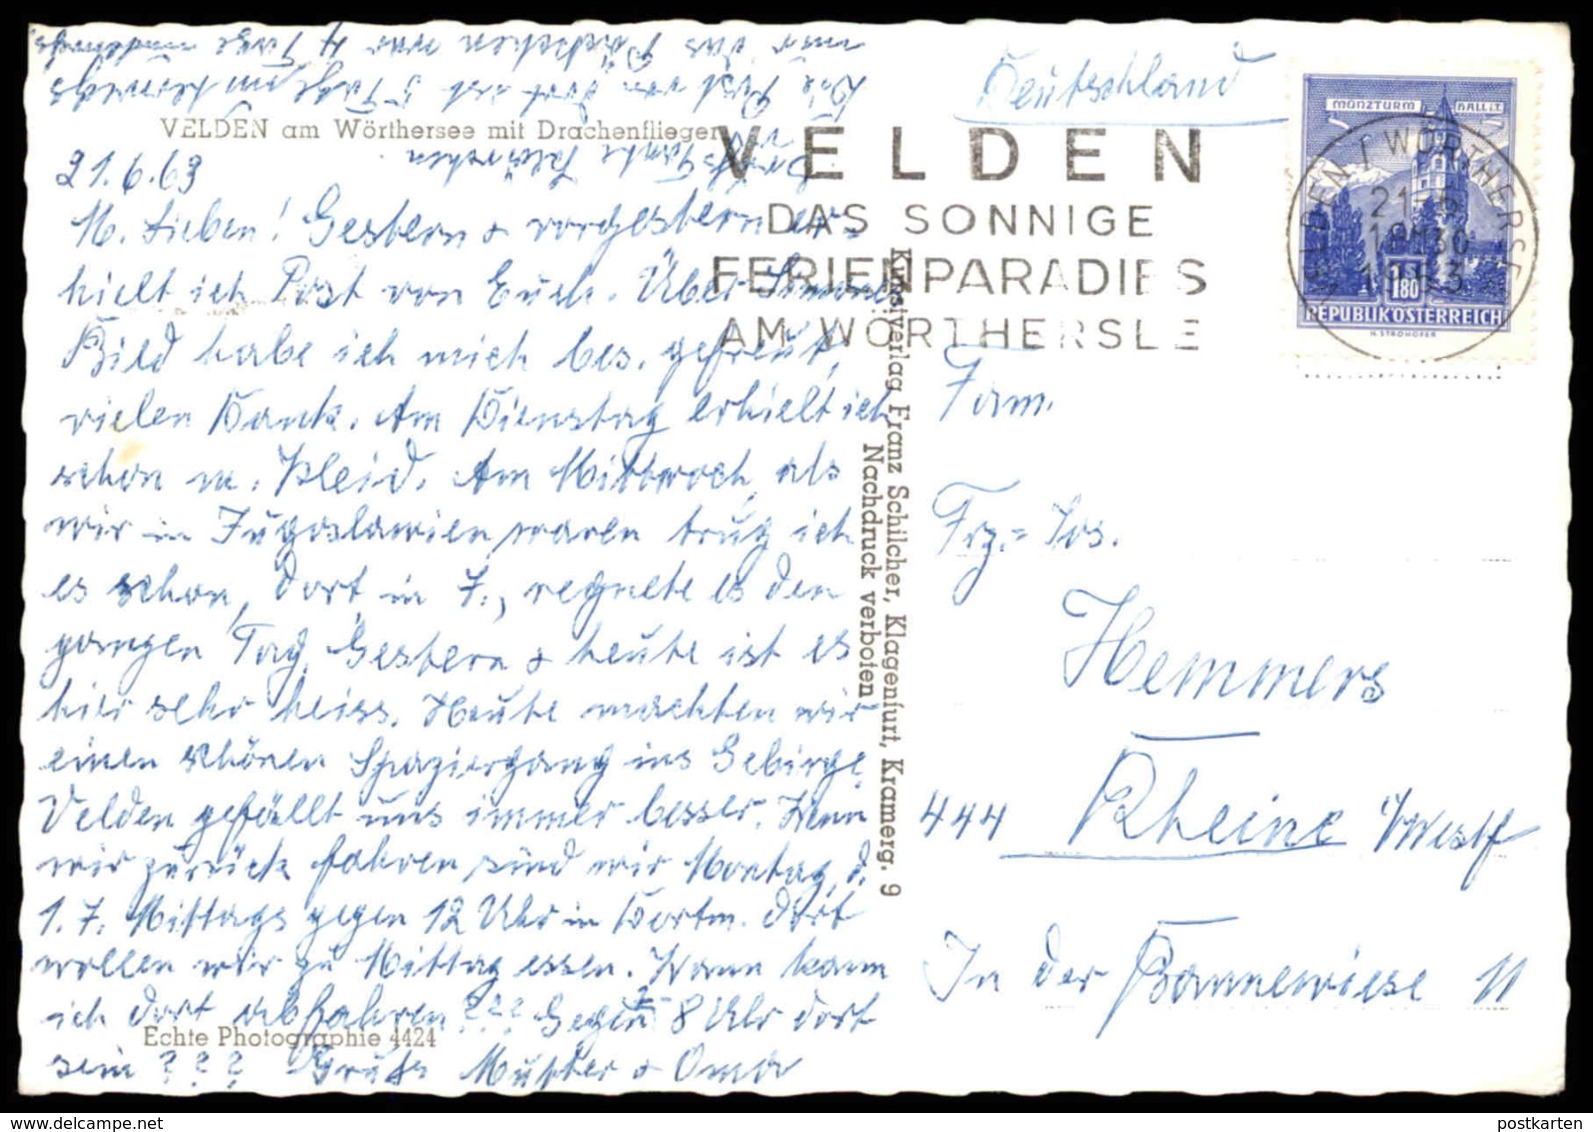 VELDEN am Wörthersee mit Drachenflieger
21.6.63
M. Lieben! Gestern & vorgestern er-
hielt ich Post von Euch. Über Simones
Bild habe ich mich bes. gefreut,
vielen Dank. Am Dienstag erhielt ich
schon m. Kleid. Am Mittwoch, als
wir in Jugoslawien waren trug ich
es schon, dort in J., regnete es den
ganzen Tag. Gestern & heute ist es
hier sehr heiss. Heute machten wir
einen schönen Spaziergang ins Gebirge.
Velden gefällt uns immer besser. Wenn
wir zurück fahren, sind wir Montag, d.
1.7. Mittags gegen 12 Uhr in Dortm. dort
wollen wir zu Mittag essen. Wann kann
ich dort abfahren??? Gegen 8 Uhr dort
sein ??? Grüße Mutter & Oma
Die Post von dort ist 5 Tage unterwegs
nur das Päckchen war 4 Tage unterwegs.
Echte Photographie 4424
Kunstverlag Franz Schilcher, Klagenfurt, Kramerg. 9
Nachdruck verboten
Deutschland
VELDEN
DAS SONNIGE
FERIENPARADIES
AM WÖRTHERSEE
MÜNZTURM HALL i.T.
1.80
REPUBLIK ÖSTERREICH
H. STROHOFER
VELDEN / WÖRTHERSEE
Fam.
Frz.=Jos.
Hemmers
444 Rheine i/Westf
In der Bannewiese 11
postkarten